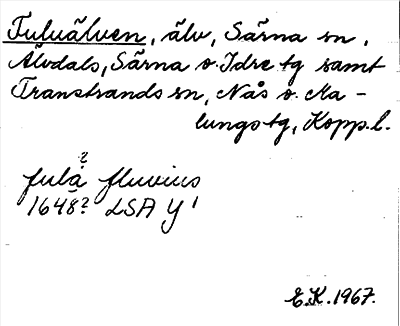 Fuluälven, älv, Särna sn,
Älvdals, Särna o. Idre tg samt
Transtrands sn, Nås o. Ma-
lungs tg, Kopp. l.
?
fula fluvius
1648? LSA Y1
E.K. 1967.